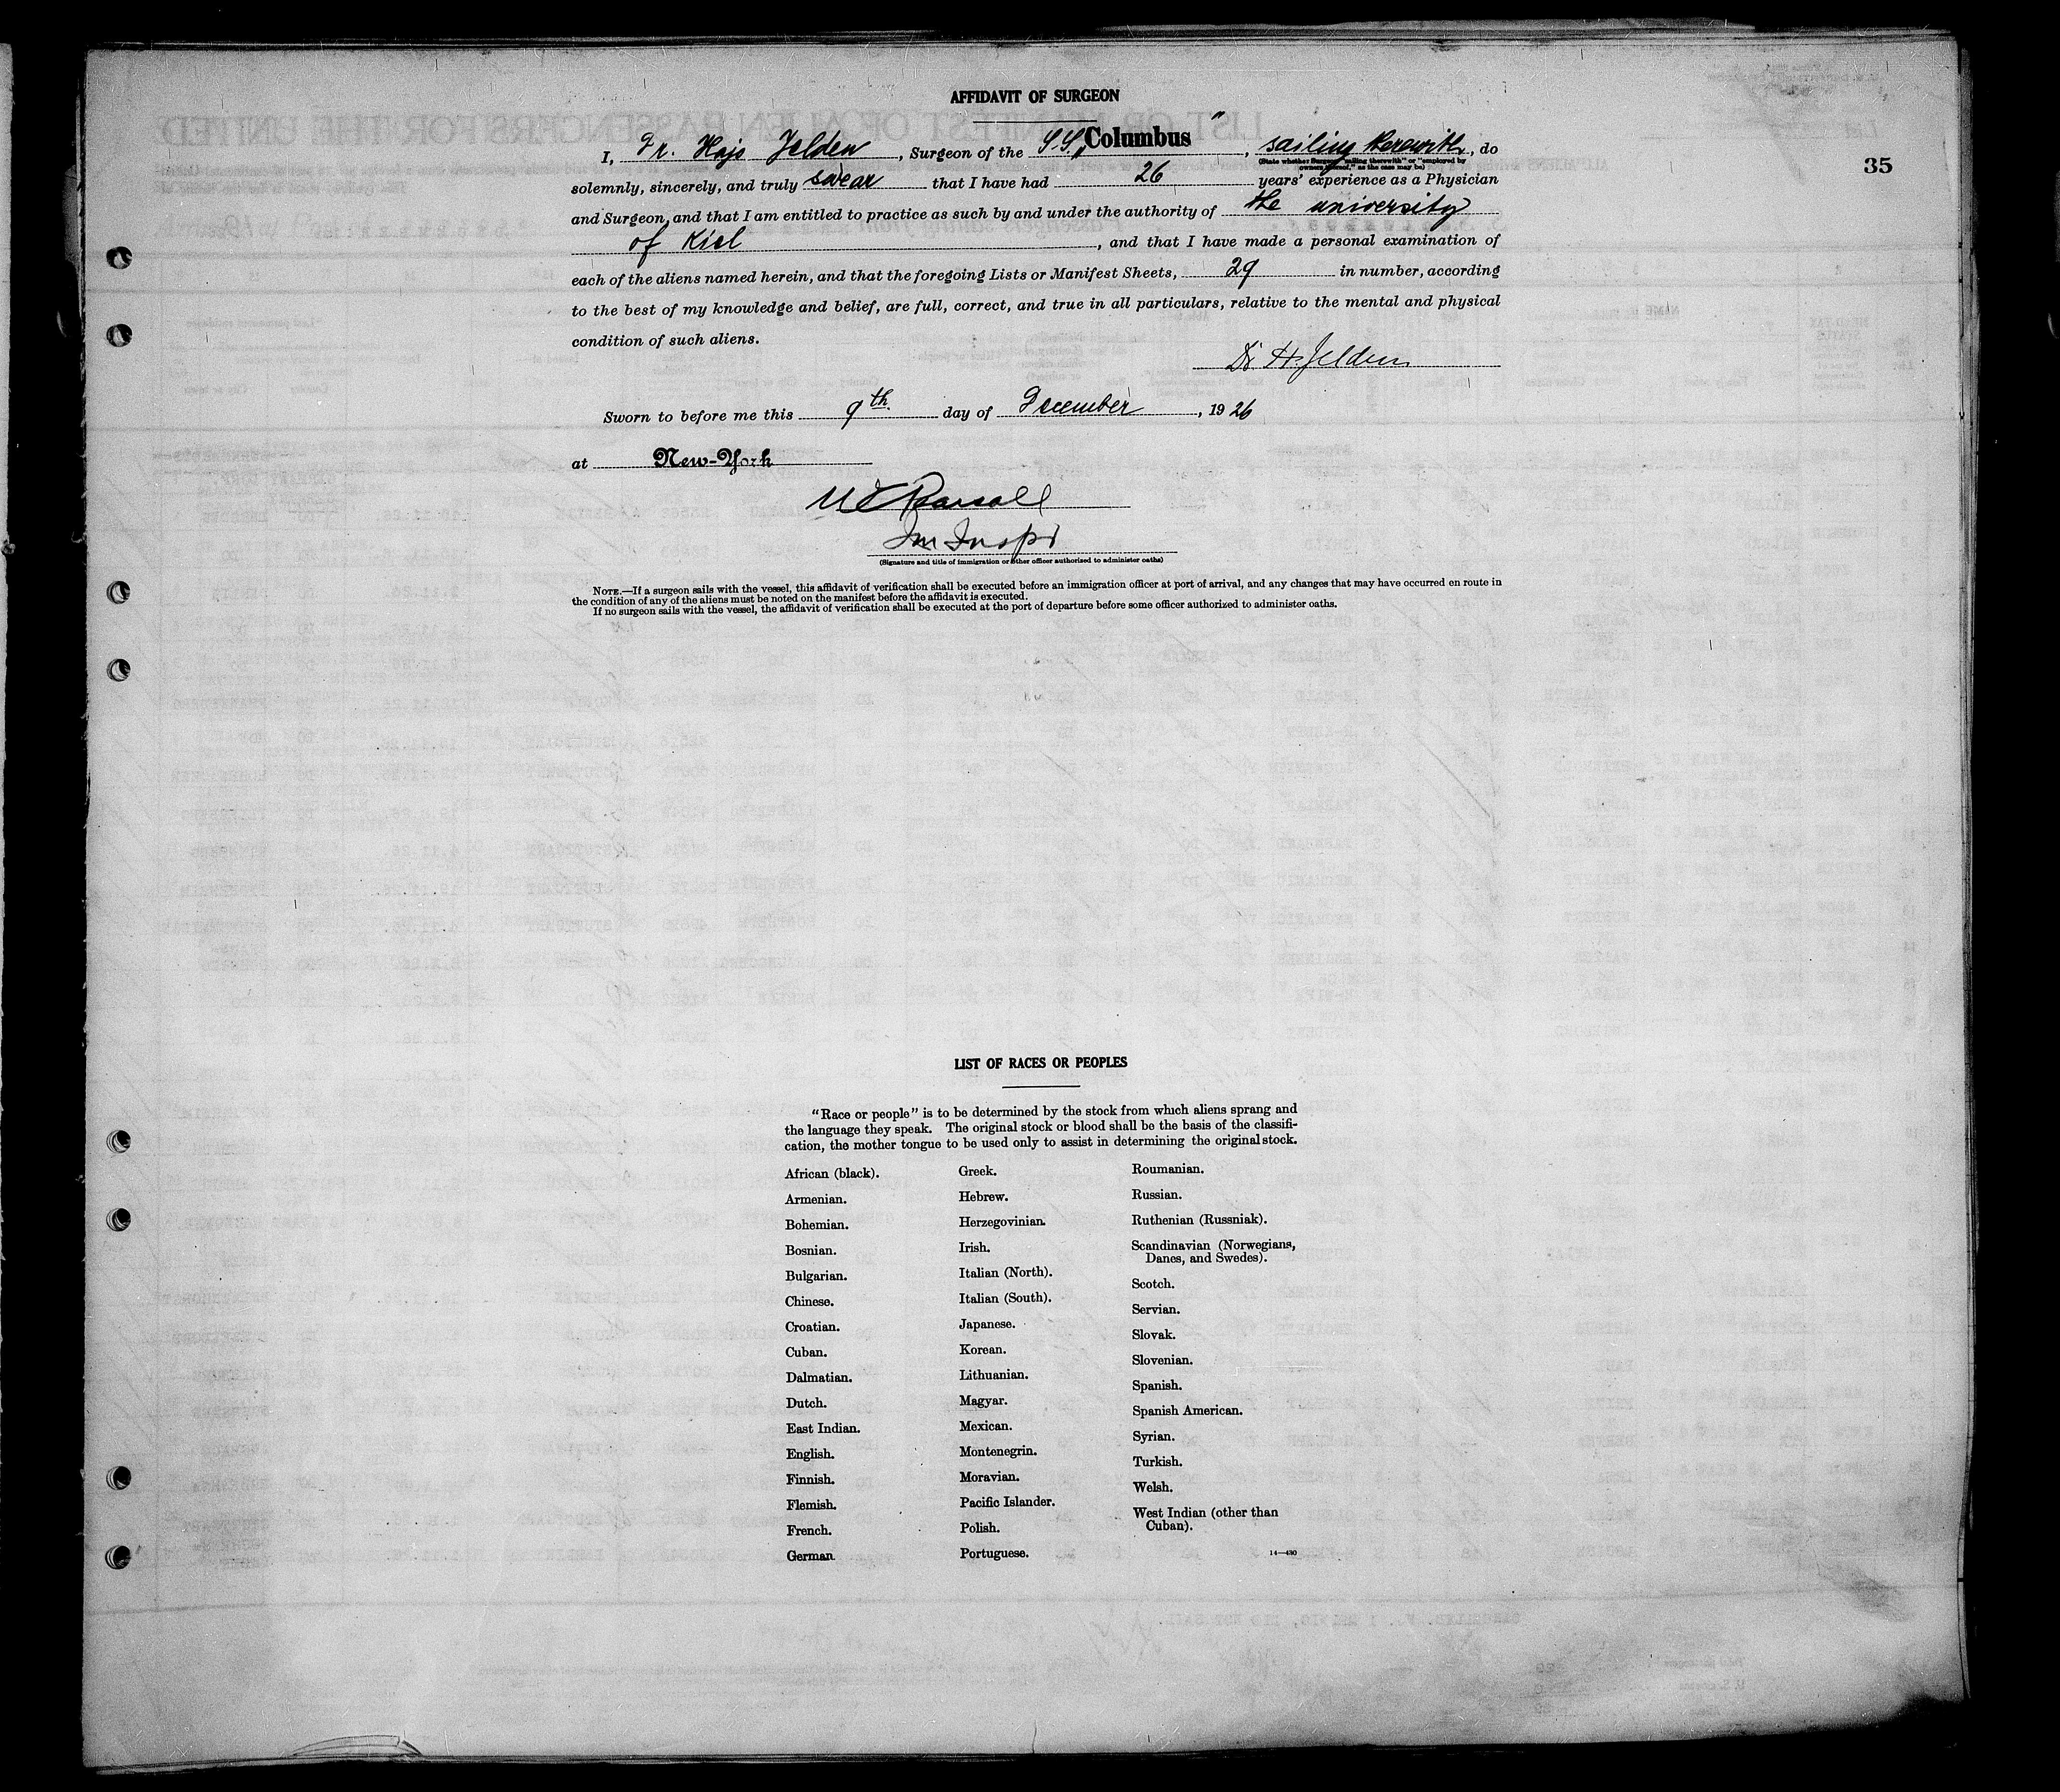 AFFIDAVIT OF SURGEON
I, Dr. Hajo Jelden, Surgeon of the S.S. „Columbus", sailing therewith, do
(State whether Surgeon "sailing therewith" or "employed by owners thereof," as the case may be)
35
solemnly, sincerely, and truly swear that I have had 26 years' experience as a Physician
and Surgeon, and that I am entitled to practice as such by and under the authority of the university
of Kiel, and that I have made a personal examination of
each of the aliens named herein, and that the foregoing Lists or Manifest Sheets, 29 in number, according
to the best of my knowledge and belief, are full, correct, and true in all particulars, relative to the mental and physical
condition of such aliens.
Dr H. Jelden
Sworn to before me this 9th. day of December, 1926
at New-York
Im Inspr
(Signature and title of immigration or other officer authorized to administer oaths)
NOTE.—If a surgeon sails with the vessel, this affidavit of verification shall be executed before an immigration officer at port of arrival, and any changes that may have occurred en route in
the condition of any of the aliens must be noted on the manifest before the affidavit is executed.
If no surgeon sails with the vessel, the affidavit of verification shall be executed at the port of departure before some officer authorized to administer oaths.
LIST OF RACES OR PEOPLES
"Race or people" is to be determined by the stock from which aliens sprang and
the language they speak. The original stock or blood shall be the basis of the classifi-
cation, the mother tongue to be used only to assist in determining the original stock.
African (black).
Armenian.
Bohemian.
Bosnian.
Bulgarian.
Chinese.
Croatian.
Cuban.
Dalmatian.
Dutch.
East Indian.
English.
Finnish.
Flemish.
French.
German.
Greek.
Hebrew.
Herzegovinian.
Irish.
Italian (North).
Italian (South).
Japanese.
Korean.
Lithuanian.
Magyar.
Mexican.
Montenegrin.
Moravian.
Pacific Islander.
Polish.
Portuguese.
Roumanian.
Russian.
Ruthenian (Russniak).
Scandinavian (Norwegians,
Danes, and Swedes).
Scotch.
Servian.
Slovak.
Slovenian.
Spanish.
Spanish American.
Syrian.
Turkish.
Welsh.
West Indian (other than
Cuban).
14—430